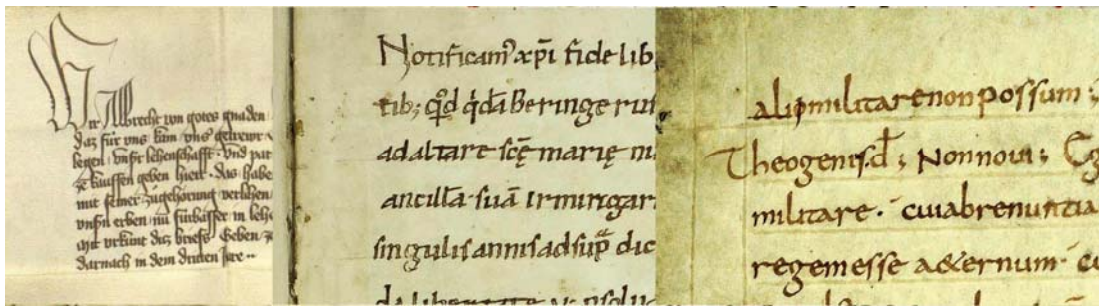 Wir Albrecht von gotes gnaden
daz für vns kam vns' getrewr
legen vnsr lehenschafft. Vnd pat
ze kauffen geben hiett. das habe
mit seiner zugehörung verlihen
vnsn erben, nu fürbasser in lehe
mit vrkunt diz briefs. Geben ze
darnach in dem dritten Jare..
Notificam' xpi fidelib
tib; qd qda Beringerus
ad altare scę marię
ancilla suā irmingar
singulis annis ad sup dic
alip militare non possum;
Theogenis. d; Non noui; Eg
militare. cui abrenuntia
regem esse aeternum. cu